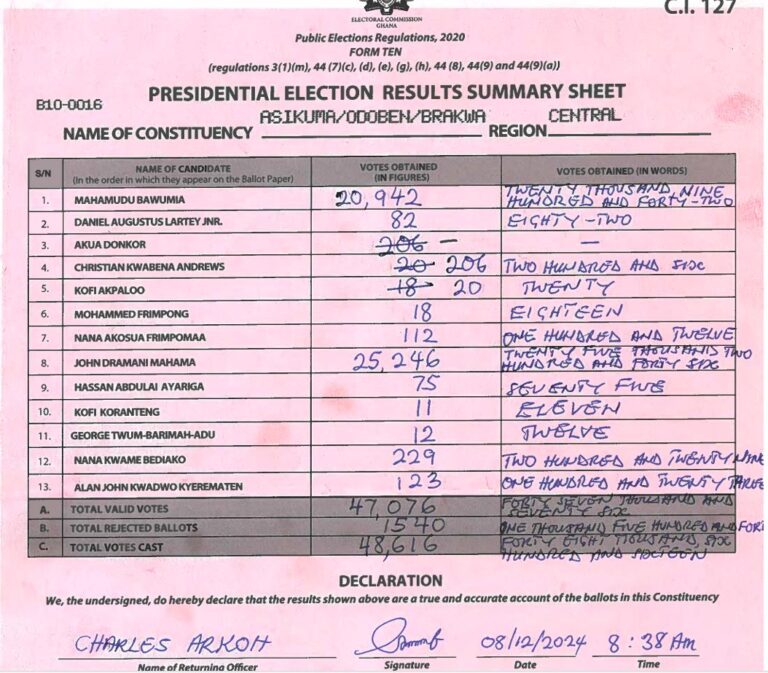 C.I. 127
ELECTORAL COMMISSION
GHANA
Public Elections Regulations, 2020
FORM TEN
(regulations 3(1)(m), 44 (7)(c), (d), (e), (g), (h), 44 (8), 44(9) and 44(9)(a))
PRESIDENTIAL ELECTION RESULTS SUMMARY SHEET
B10-0016
ASIKUMA/ODOBEN/BRAKWA CENTRAL
NAME OF CONSTITUENCY REGION
S/N NAME OF CANDIDATE (In the order in which they appear on the Ballot Paper) VOTES OBTAINED (IN FIGURES) VOTES OBTAINED (IN WORDS)
1. MAHAMUDU BAWUMIA 20,942 TWENTY THOUSAND, NINE HUNDRED AND FORTY-TWO
2. DANIEL AUGUSTUS LARTEY JNR. 82 EIGHTY-TWO
3. AKUA DONKOR 206 — —
4. CHRISTIAN KWABENA ANDREWS 20 206 TWO HUNDRED AND SIX
5. KOFI AKPALOO 18 20 TWENTY
6. MOHAMMED FRIMPONG 18 EIGHTEEN
7. NANA AKOSUA FRIMPOMAA 112 ONE HUNDRED AND TWELVE
8. JOHN DRAMANI MAHAMA 25,246 TWENTY FIVE THOUSAND TWO HUNDRED AND FORTY SIX
9. HASSAN ABDULAI AYARIGA 75 SEVENTY FIVE
10. KOFI KORANTENG 11 ELEVEN
11. GEORGE TWUM-BARIMAH-ADU 12 TWELVE
12. NANA KWAME BEDIAKO 229 TWO HUNDRED AND TWENTY NINE
13. ALAN JOHN KWADWO KYEREMATEN 123 ONE HUNDRED AND TWENTY THREE
A. TOTAL VALID VOTES 47,076 FORTY SEVEN THOUSAND AND SEVENTY SIX
B. TOTAL REJECTED BALLOTS 1540 ONE THOUSAND FIVE HUNDRED AND FORT
C. TOTAL VOTES CAST 48,616 FORTY EIGHT THOUSAND, SIX HUNDRED AND SIXTEEN
DECLARATION
We, the undersigned, do hereby declare that the results shown above are a true and accurate account of the ballots in this Constituency
CHARLES ARKOH 08/12/2024 8:38 Am
Name of Returning Officer Signature Date Time